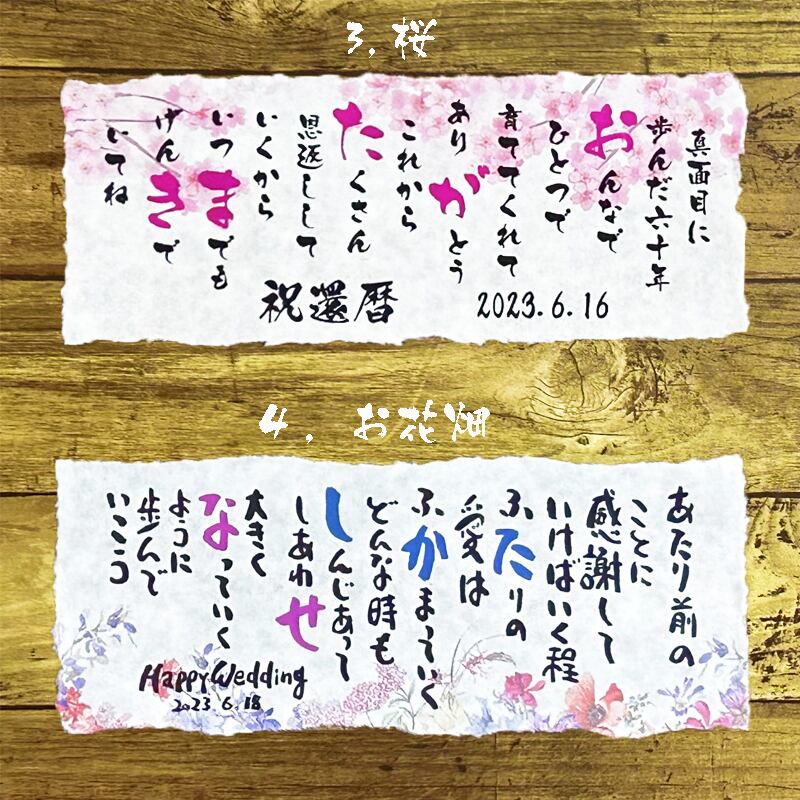 3. 桜
真面目に
歩んだ六十年
おんなで
ひとつで
育ててくれて
ありがとう
これから
たくさん
恩返しして
いくから
いつまでも
げんきで
いてね
祝還暦
2023.6.16
4. お花畑
あたり前の
ことに
感謝して
いけばいく程
ふたりの
愛は
ふかまっていく
どんな時も
しんじあって
しあわせ
大きく
なっていく
ように
歩んで
いこう
Happy Wedding
2023.6.18